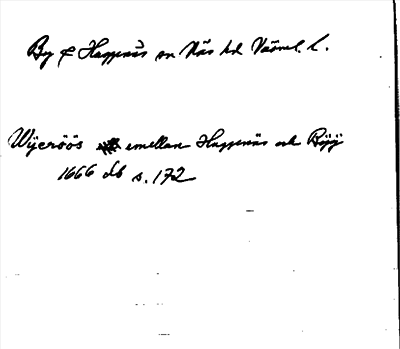 By f Haggenäs sn Näs hd Västml. l.
Wÿeröös emellan Haggenäs och Bÿÿ
1666 db s. 172